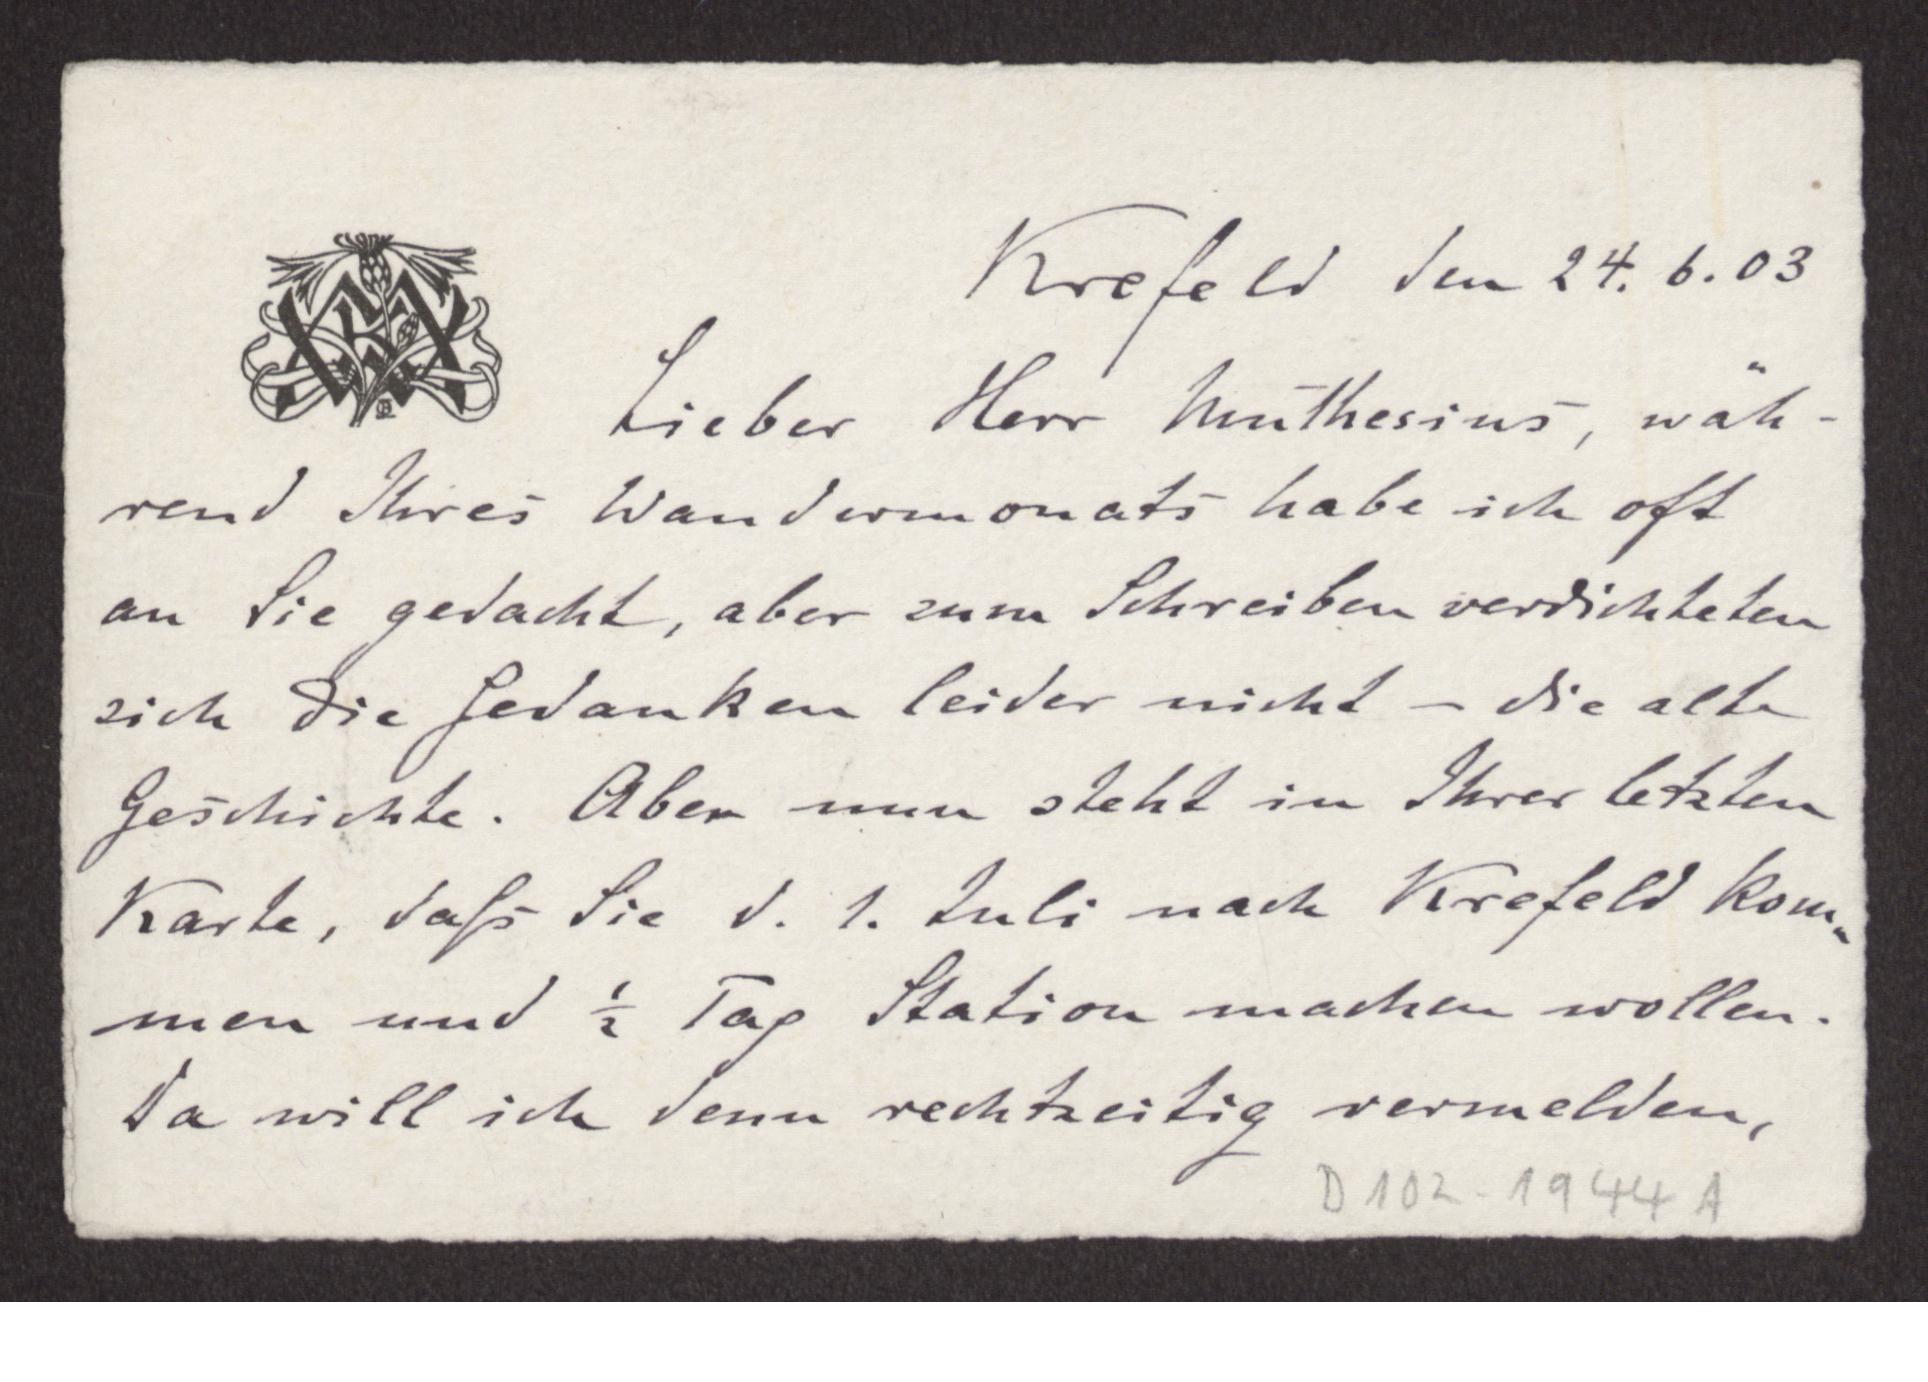 Krefeld den 24. 6. 03
Lieber Herr Muthesius, wäh-
rend Ihres Wandermonats habe ich oft
an Sie gedacht, aber zum Schreiben verdichteten
sich die Gedanken leider nicht – die alte
Geschichte. Aber nun steht in Ihrer letzten
Karte, daſs Sie d. 1. Juli nach Krefeld kom-
men und ½ Tag Station machen wollen.
Da will ich denn rechtzeitig vermelden,
D 102-1944 A